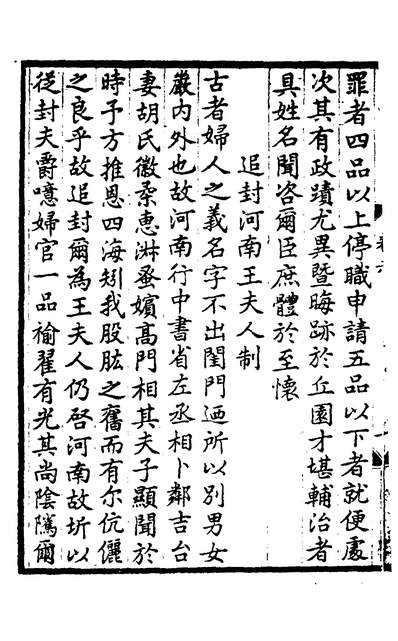 罪者四品以上停職申請五品以下者就便處
次其有政蹟尤異暨晦跡於丘園才堪輔治者
具姓名聞咨爾臣庶體於至懷
追封河南王夫人制
古者婦人之義名字不出閨門迺所以別男女
嚴内外也故河南行中書省左丞相卜鄰吉台
妻胡氏徽柔惠淋蚤嬪高門相其夫子顯聞於
時予方推恩四海矧我股肱之舊而有尔伉儷
之良乎故追封爾為王夫人仍啓河南故圻以
從封夫爵噫婦官一品褕翟有光其尚陰隲爾